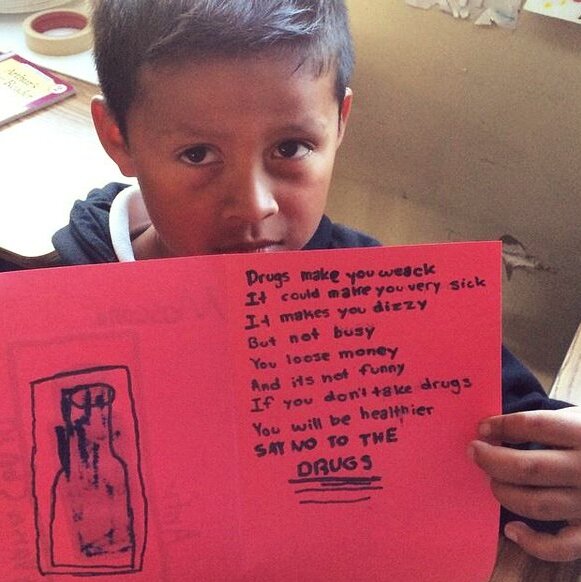 Arthur's
Reader
Drugs make you weack
It could make you very sick
It makes you dizzy
But not busy
You loose money
And its not funny
If you don't take drugs
You will be healthier
SAY NO TO THE
DRUGS